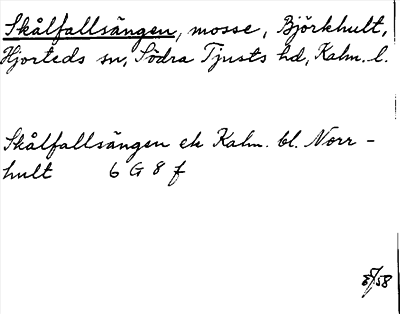 Skålfallsängen, mosse, Björkhult,
Hjorteds sn, Södra Tjusts hd, Kalm. l.
Skålfallsängen ek Kalm. bl. Norr-
hult 6 G 8 f